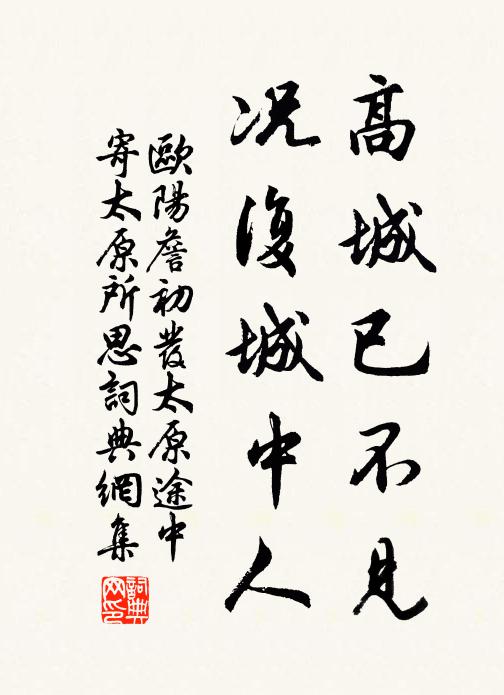 高城已不見
況復城中人
歐陽詹初發太原途中
寄太原所思詞典網集
詞典
网印